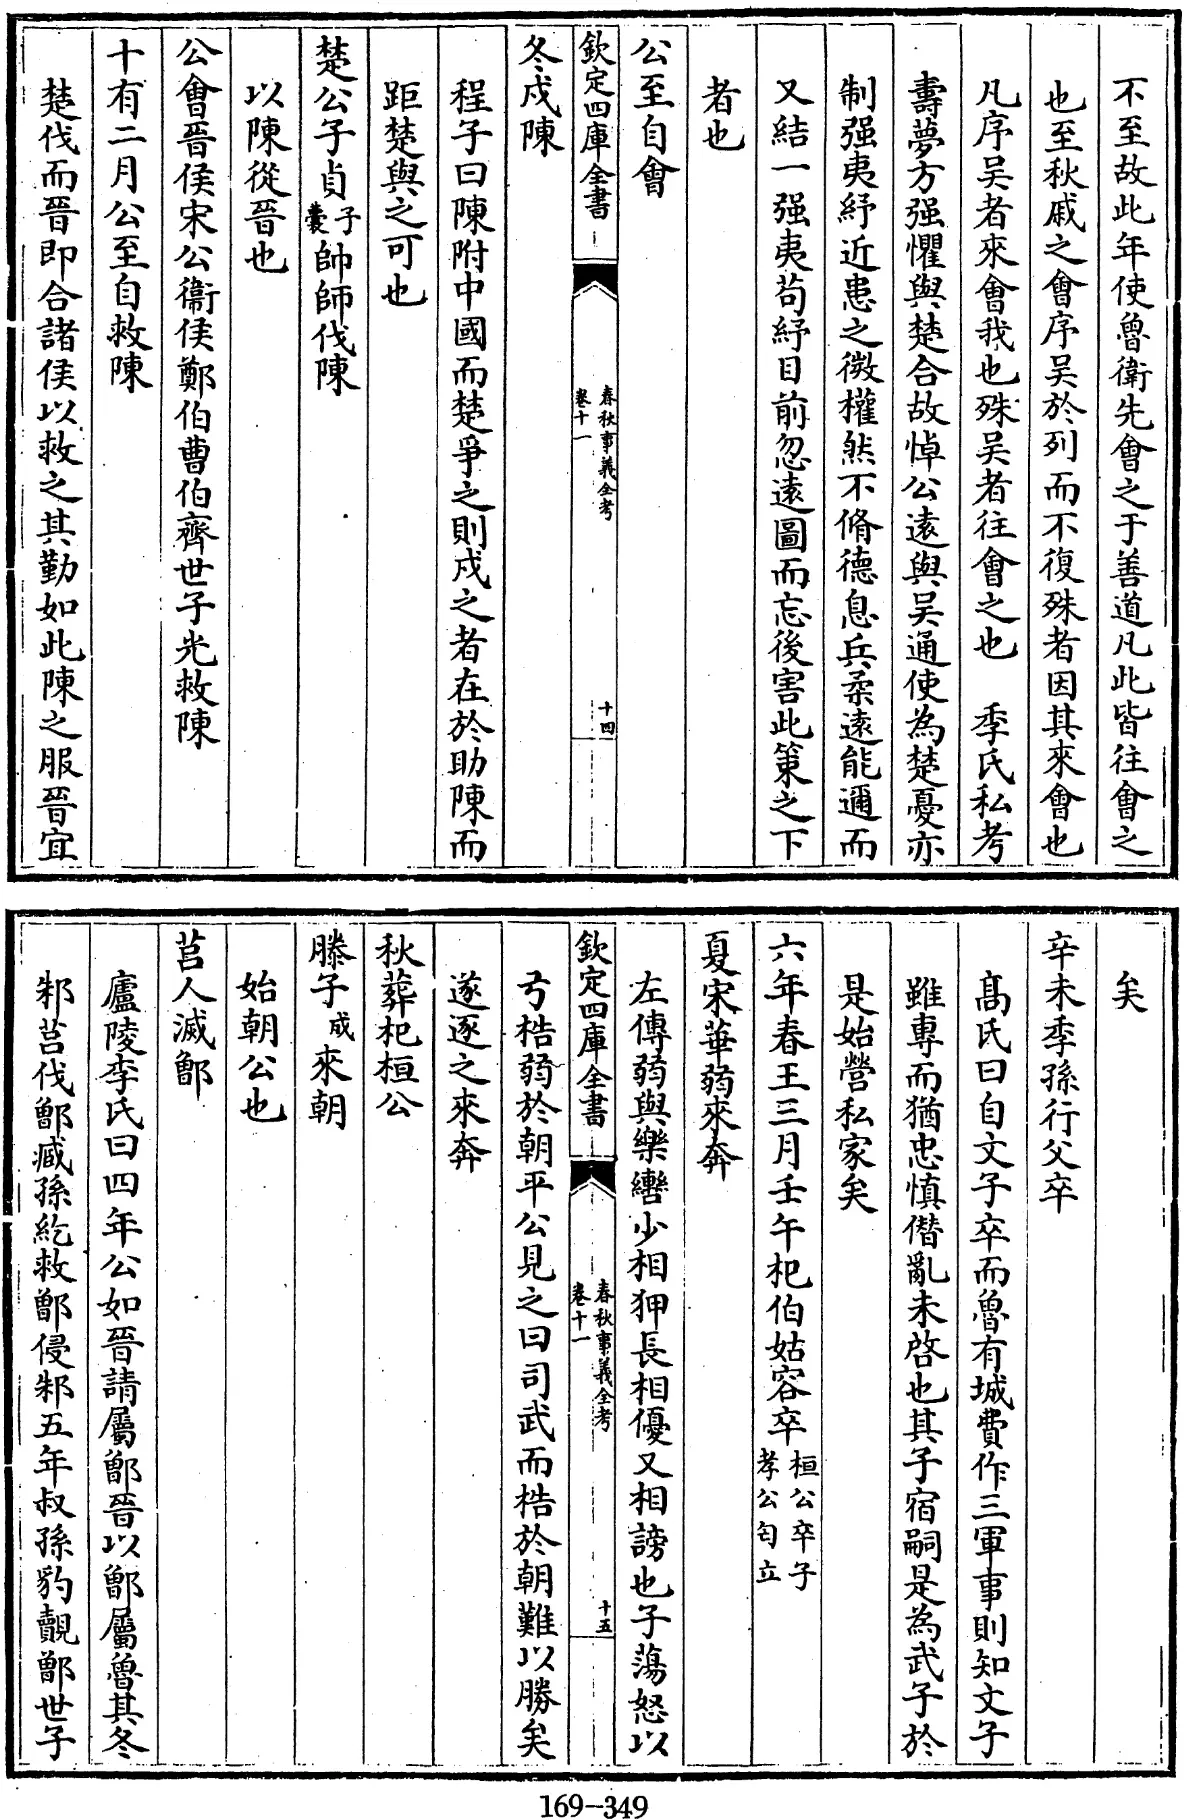 不至故此年使魯衛先會之于善道凡此皆往會之
也至秋戚之會序吴於列而不復殊者因其來會也
凡序吴者來會我也殊吴者往會之也　季氏私考
壽夢方强懼與楚合故悼公遠與吴通使為楚憂亦
制强夷紓近患之微權然不脩德息兵柔遠能邇而
又結一强夷苟紓目前忽遠圖而忘後害此策之下
者也
公至自會
欽定四庫全書
春秋事義全考
卷十一
十四
冬戍陳
程子曰陳附中國而楚爭之則戍之者在於助陳而
距楚與之可也
楚公子貞子囊帥師伐陳
以陳從晉也
公會晉侯宋公衞侯鄭伯曹伯齊世子光救陳
十有二月公至自救陳
楚伐而晉即合諸侯以救之其勤如此陳之服晉宜
矣
辛未季孫行父卒
髙氏曰自文子卒而魯有城費作三軍事則知文子
雖專而猶忠慎僭亂未啓也其子宿嗣是為武子於
是始營私家矣
六年春王三月壬午杞伯姑容卒桓公卒子孝公匄立
夏宋華弱來奔
左傳弱與樂轡少相狎長相優又相謗也子蕩怒以
欽定四庫全書
春秋事義全考
卷十一
十五
弓梏弱於朝平公見之曰司武而梏於朝難以勝矣
遂逐之來奔
秋葬杞桓公
滕子成來朝
始朝公也
莒人滅鄫
廬陵李氏曰四年公如晉請屬鄫晉以鄫屬魯其冬
邾莒伐鄫臧孫紇救鄫侵邾五年叔孫豹覿鄫世子
169-349